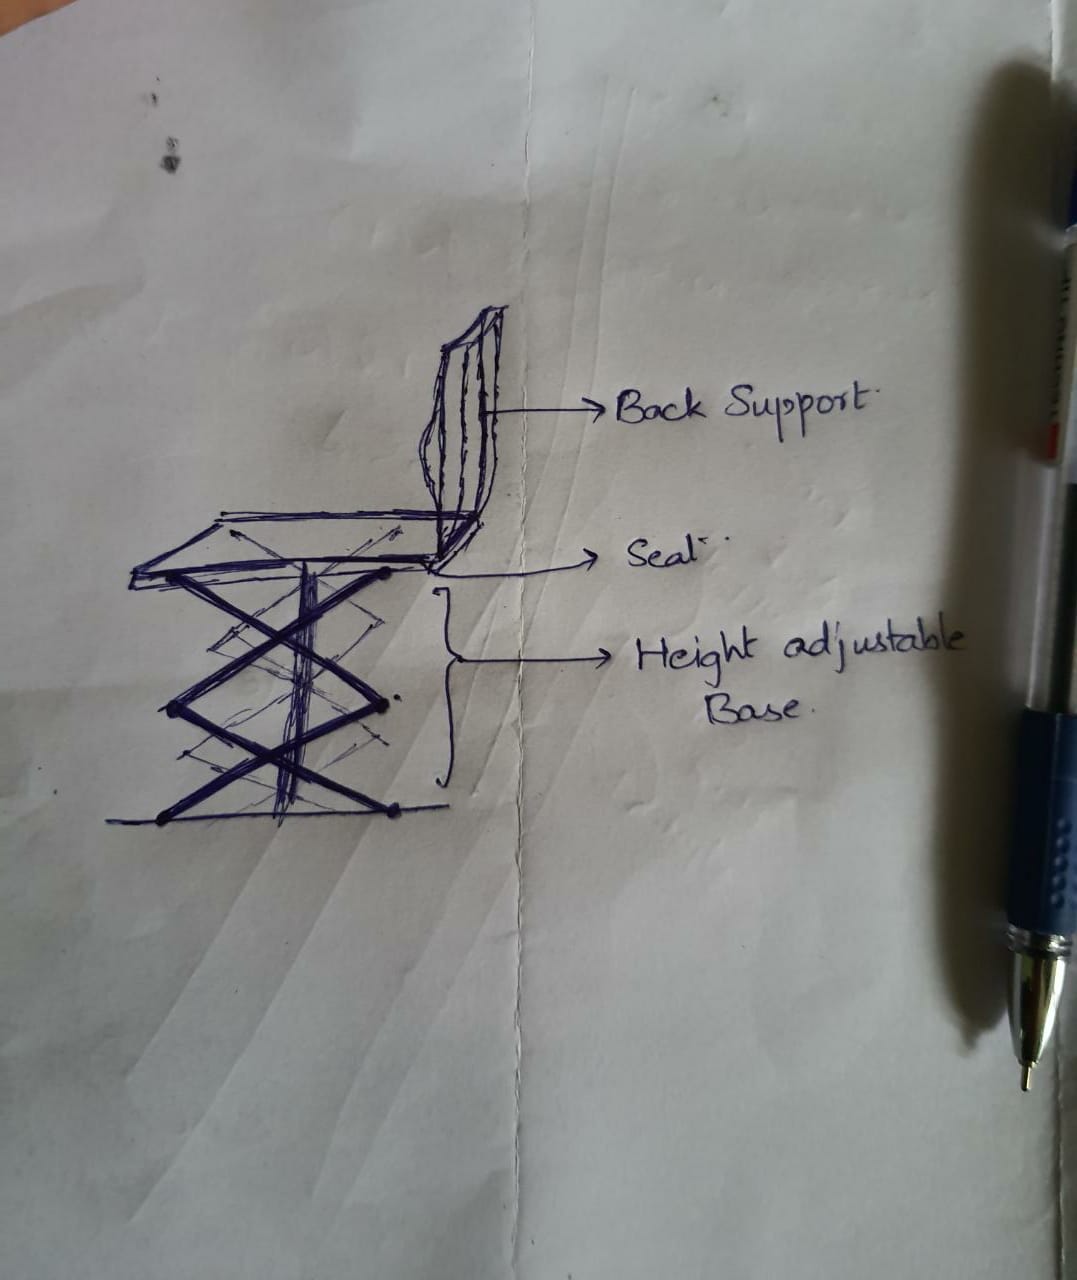 Back Support
Seat
Height adjustable
Base.